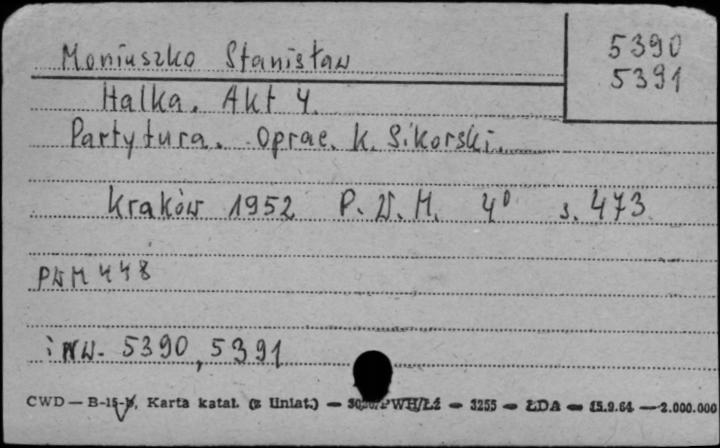 Moniuszko Stanisław
5390
5391
Halka. Akt 4.
Partytura. Oprac. K. Sikorski.
Kraków 1952 P.W.M. 4° s. 473
PWM 448
inw. 5390, 5391
CWD — B-15-b, Karta katal. (z liniat.) — PWH/Łż — 3255 — ŁDA — 15.9.64 — 2.000.000